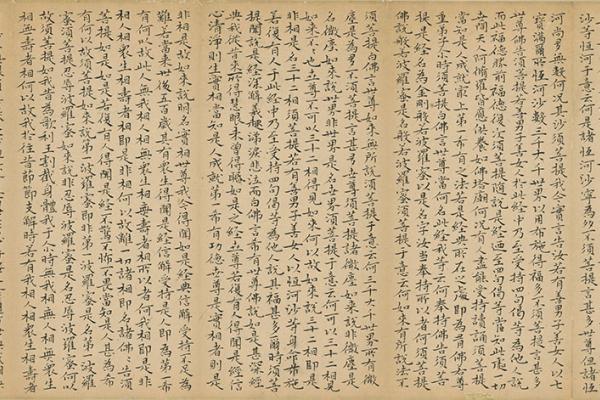 沙等恒河于意云何是諸恒河沙寧為多不須菩提言甚多世尊但諸恒
河尚多無數何況其沙須菩提我今實言告汝若有善男子善女人以七
寶滿爾所恒河沙數三千大千世界以用布施得福多不須菩提言甚多
世尊佛告須菩提若善男子善女人於此經中乃至受持四句偈等為他人說
而此福德勝前福德復次須菩提隨說是經乃至四句偈等當知此處一切
世間天人阿脩羅皆應供養如佛塔廟何況有人盡能受持讀誦須菩提
當知是人成就最上第一希有之法若是經典所在之處即為有佛若尊
重弟子尒時須菩提白佛言世尊當何名此經我等云何奉持佛告須菩
提是經名為金剛般若波羅蜜以是名字汝當奉持所以者何須菩提
佛說般若波羅蜜即非般若波羅蜜須菩提于意云何如來有所說法不
須菩提白佛言世尊如來無所說須菩提于意云何三千大千世界所有微
塵是為多不須菩提言甚多世尊須菩提諸微塵如來說非微塵是
名微塵如來說世界非世界是名世界須菩提于意云何可以三十二相見
如來不不也世尊不可以三十二相得見如來何以故如來說三十二相即是
非相是名三十二相須菩提若有善男子善女人以恒河沙等身命布施
若復有人于此經中乃至受持四句偈等為他人說其福甚多尒時須菩
提聞說是經深解義趣涕淚悲泣而白佛言希有世尊佛說如是甚深經
典我從昔來所得慧眼未曾得聞如是之經世尊若復有人得聞是經信
心清淨則生實相當知是人成就第一希有功德世尊是實相者則是
非相是故如來說名實相世尊我今得聞如是經典信解受持不足為
難若當來世後五百歲其有衆生得聞是經信解受持是人即為第一希
有何以故此人無我相無人相無衆生相無壽者相所以者何我相即是非
相人相衆生相壽者相即是非相何以故離一切諸相即名諸佛佛告須
菩提如是如是若復有人得聞是經不驚不怖不畏當知是人甚為希
有何以故須菩提如來說第一波羅蜜即非第一波羅蜜是名第一波羅
蜜須菩提忍辱波羅蜜如來說非忍辱波羅蜜是名忍辱波羅蜜何以
故須菩提如我昔為歌利王割截身體我于尒時無我相無人相無衆生
相無壽者相何以故我於往昔節節支解時若有我相人相衆生相壽者